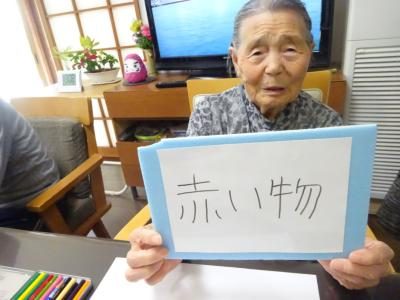 赤い物